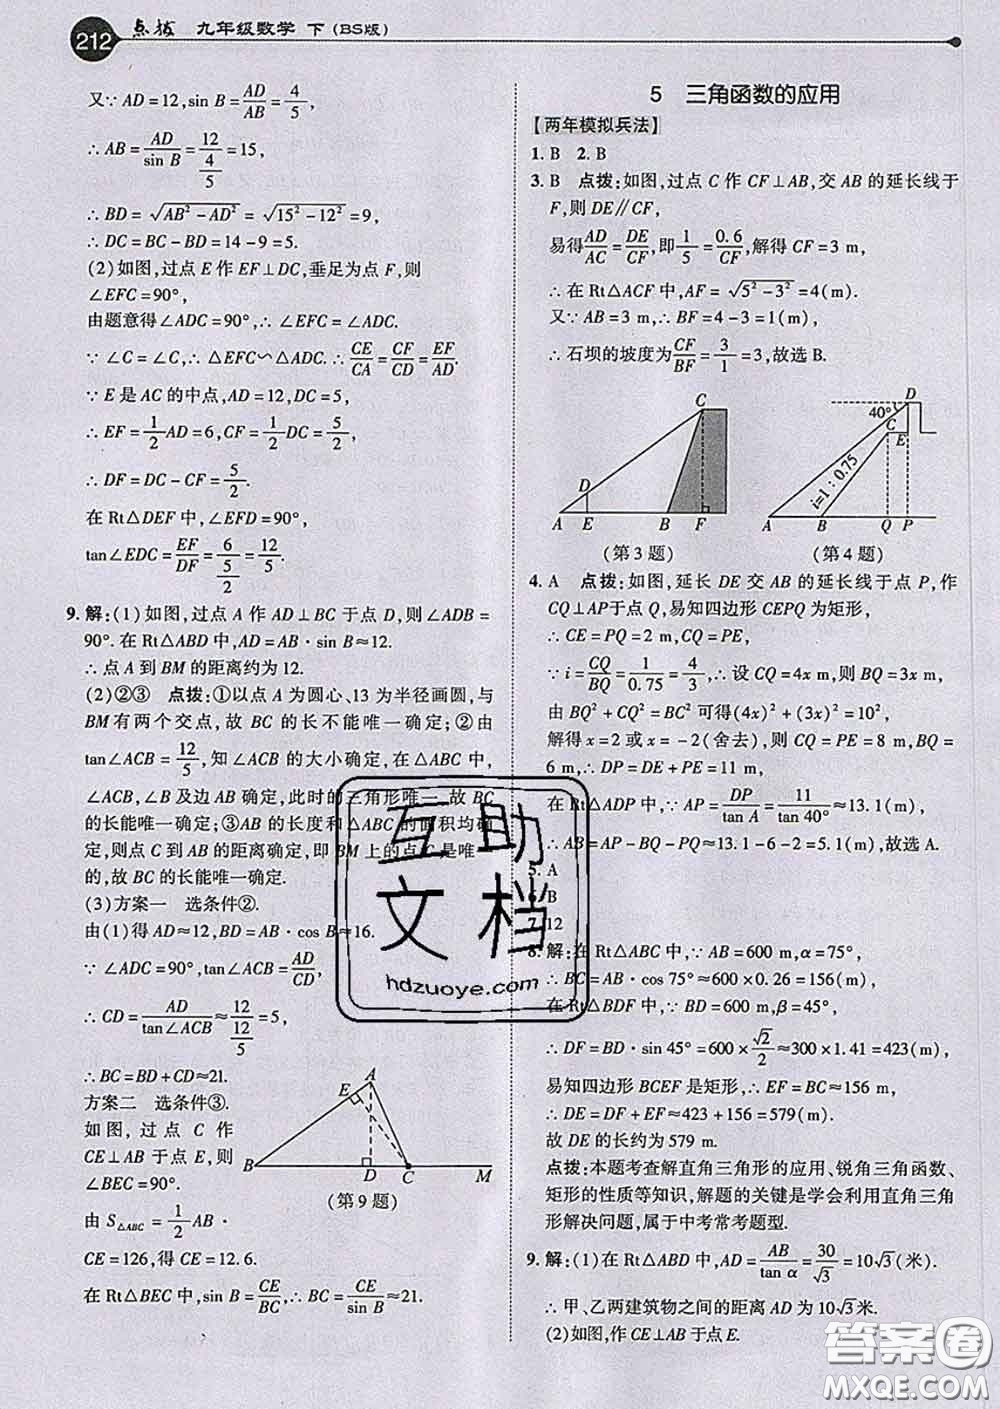 212 点拨 九年级数学 下(BS版)
又∵AD=12,sin B=AD/AB=4/5,
∴AB=AD/sin B=12/(4/5)=15,
∴BD=√(AB²-AD²)=√(15²-12²)=9,
∴DC=BC-BD=14-9=5.
(2)如图,过点E作EF⊥DC,垂足为点F,则
∠EFC=90°,
由题意得∠ADC=90°,∴∠EFC=∠ADC.
∵∠C=∠C,∴△EFC∽△ADC.∴CE/CA=CF/CD=EF/AD.
∵E是AC的中点,AD=12,DC=5,
∴EF=1/2AD=6,CF=1/2DC=5/2,
∴DF=DC-CF=5/2.
在Rt△DEF中,∠EFD=90°,
tan∠EDC=EF/DF=6/(5/2)=12/5.
9.解:(1)如图,过点A作AD⊥BC于点D,则∠ADB=
90°.在Rt△ABD中,AD=AB·sin B≈12.
∴点A到BM的距离约为12.
(2)②③ 点拨:①以点A为圆心、13为半径画圆,与
BM有两个交点,故BC的长不能唯一确定;②由
tan∠ACB=12/5,知∠ACB的大小确定,在△ABC中,
∠ACB,∠B及边AB确定,此时的三角形唯一,故BC
的长能唯一确定;③AB的长度和△ABC的面积均确
定,则点C到AB的距离确定,即BM上的点C是唯一
的,故BC的长能唯一确定.
(3)方案一 选条件②.
由(1)得AD≈12,BD=AB·cos B≈16.
∵∠ADC=90°,tan∠ACB=AD/CD,
∴CD=AD/tan∠ACB≈12/(12/5)=5,
∴BC=BD+CD≈21.
方案二 选条件③.
如图,过点C作
CE⊥AB于点E,则
∠BEC=90°.
由S△ABC=1/2AB·
CE=126,得CE=12.6.
在Rt△BEC中,sin B=CE/BC,∴BC=CE/sin B≈21.
A
E
B
D
C
M
(第9题)
5 三角函数的应用
【两年模拟兵法】
1.B 2.B
3.B 点拨:如图,过点C作CF⊥AB,交AB的延长线于
F,则DE∥CF,
易得AD/AC=DE/CF,即1/5=0.6/CF,解得CF=3 m,
∴在Rt△ACF中,AF=√(5²-3²)=4(m).
又∵AB=3 m,∴BF=4-3=1(m),
∴石坝的坡度为CF/BF=3/1=3,故选B.
C
D
A E B F
(第3题)
40°
D
C
E
i=1:0.75
A B Q P
(第4题)
4.A 点拨:如图,延长DE交AB的延长线于点P,作
CQ⊥AP于点Q,易知四边形CEPQ为矩形,
∴CE=PQ=2 m,CQ=PE,
∵i=CQ/BQ=1/0.75=4/3,∴设CQ=4x m,则BQ=3x m,
由BQ²+CQ²=BC²可得(4x)²+(3x)²=10²,
解得x=2或x=-2(舍去),则CQ=PE=8 m,BQ=
6 m,∴DP=DE+PE=11 m,
在Rt△ADP中,∵AP=DP/tan A=11/tan 40°≈13.1(m),
∴AB=AP-BQ-PQ≈13.1-6-2=5.1(m),故选A.
5.A
6.B
7.12
8.解:在Rt△ABC中,∵AB=600 m,α=75°,
∴BC=AB·cos 75°≈600×0.26=156(m),
在Rt△BDF中,∵BD=600 m,β=45°,
∴DF=BD·sin 45°=600×√2/2≈300×1.41=423(m),
易知四边形BCEF是矩形,∴EF=BC≈156 m,
∴DE=DF+EF≈423+156=579(m).
故DE的长约为579 m.
点拨:本题考查解直角三角形的应用、锐角三角函数、
矩形的性质等知识,解题的关键是学会利用直角三角
形解决问题,属于中考常考题型.
9.解:(1)在Rt△ABD中,AD=AB/tan α=30/√3=10√3(米).
∴甲、乙两建筑物之间的距离AD为10√3米.
(2)如图,作CE⊥AB于点E.
互助
文档
hdzuoye.com
答案圈
MXQE.COM